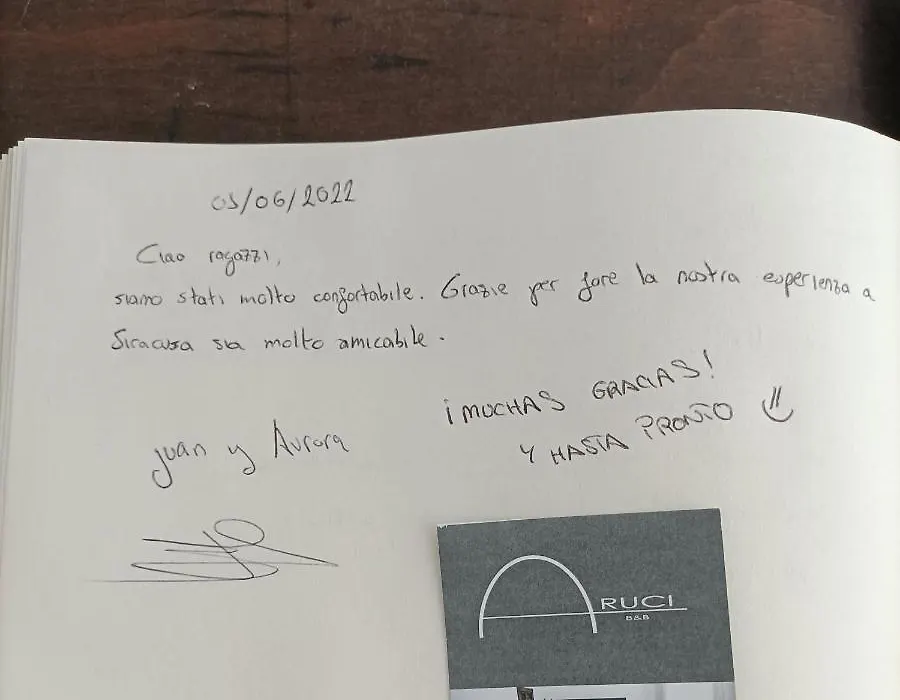 05/06/2022
Ciao ragazzi,
siamo stati molto confortabile. Grazie per fare la nostra esperienza a
Siracusa sia molto amicabile.
¡MUCHAS GRACIAS!
Y HASTA PRONTO
Juan y Aurora
ARUCI
B&B